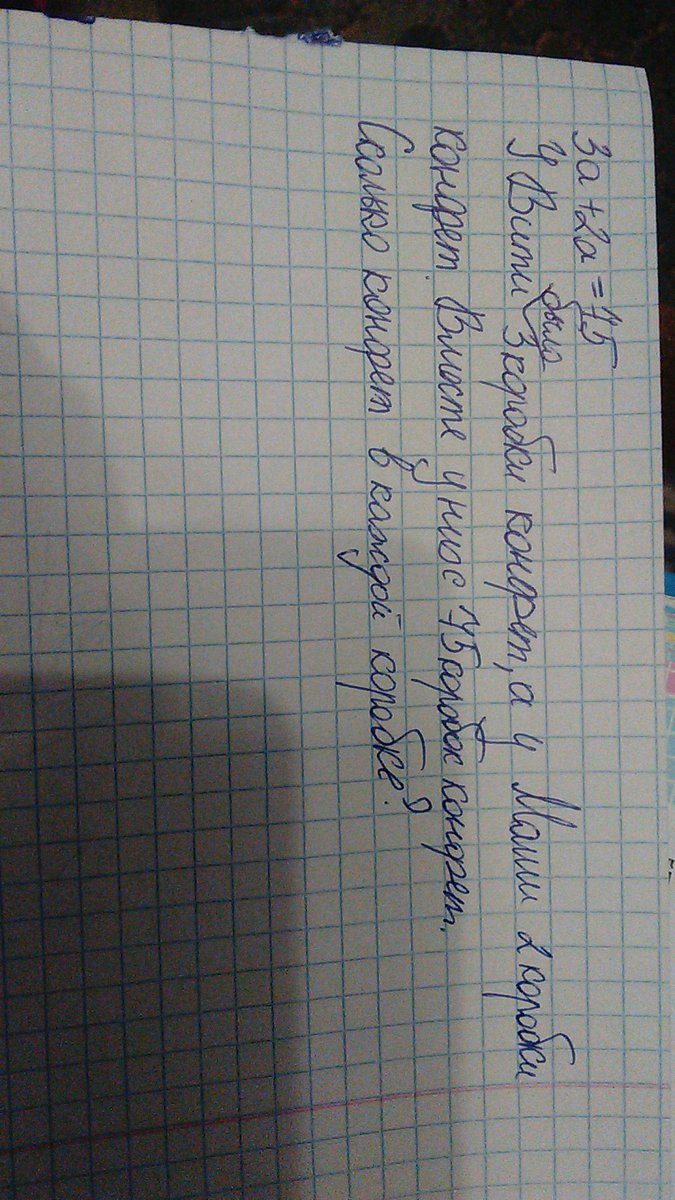 3а + 2а = 75
У Вити было 3 коробки конфет, а у Маши 2 коробки
конфет. Вместе у них 75 коробок конфет.
Сколько конфет в каждой коробке?